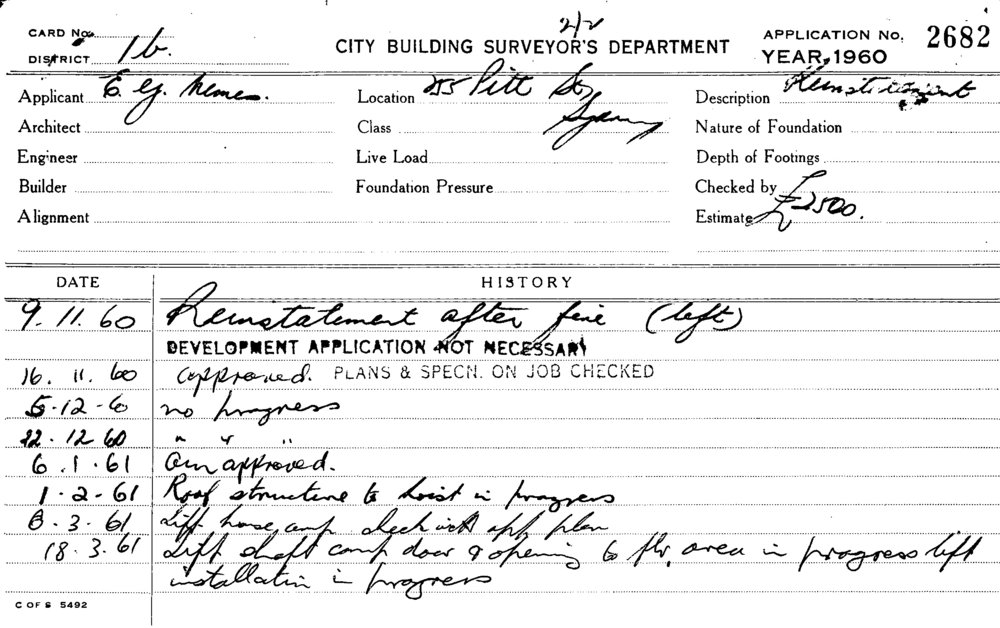 2/2
CARD No.
DISTRICT 1b.
CITY BUILDING SURVEYOR'S DEPARTMENT
APPLICATION No. 2682
YEAR, 1960
Applicant E. G. Nemes.
Location 255 Pitt St, Sydney
Description Reinstatement
Architect
Class
Nature of Foundation
Engineer
Live Load
Depth of Footings
Builder
Foundation Pressure
Checked by
Alignment
Estimate £2500.
DATE HISTORY
9.11.60 Reinstatement after fire (left)
DEVELOPMENT APPLICATION NOT NECESSARY
16.11.60 approved. PLANS & SPECN. ON JOB CHECKED
5-12-60 no progress
12.12.60 " " "
6.1.61 approved.
1-2-61 Roof structure to hoist in progress
8.3.61 Lift house comp check with app plan
18.3.61 Lift shaft comp door & opening to flr. area in progress lift
installation in progress
C OF S 5492